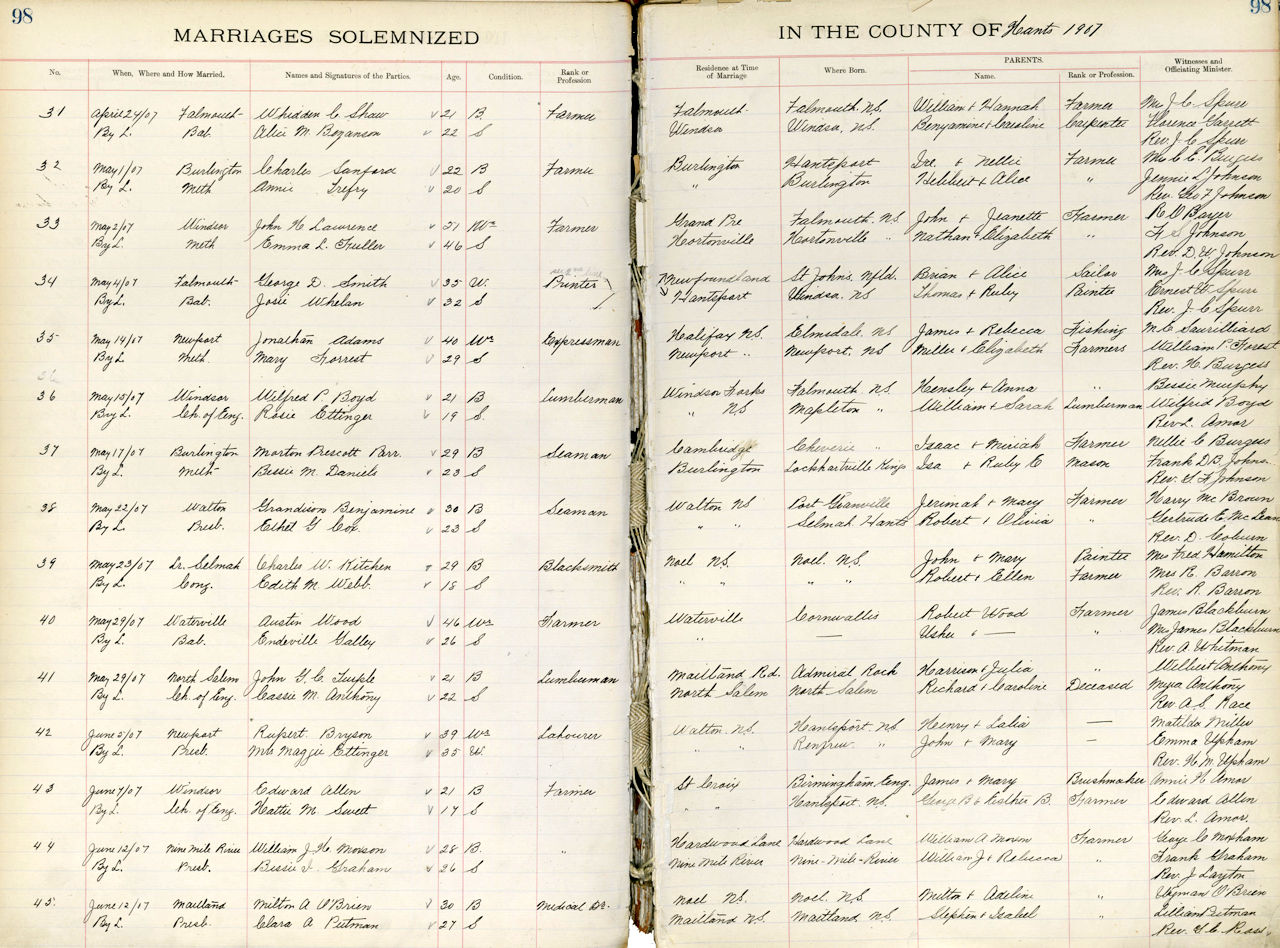 98
MARRIAGES SOLEMNIZED
No. When, Where and How Married. Names and Signatures of the Parties. Age. Condition. Rank or Profession
31 April 24/07 Falmouth Whidden C Shaw v 21 B Farmer
By L. Bab. Alice M Bezanson v 22 S
32 May 1/07 Burlington Charles Sanford v 22 B Farmer
By L. Meth Annie Trefry v 20 S
33 May 2/07 Windsor John H Lawrence v 51 Wr Farmer
By L. Meth Emma L. Fuller v 46 S
34 May 4/07 Falmouth George D. Smith v 35 W. Printer
By L. Bab. Josie Whelan v 32 S
35 May 14/07 Newport Jonathan Adams v 40 Wr Expressman
By L Meth. Mary Forrest v 29 S
36
36 May 15/07 Windsor Wilfred P. Boyd v 21 B Lumberman
By L. Ch. of Eng. Rosie Ettinger v 19 S.
37 May 17/07 Burlington Morton Prescott Parr. v 29 B Seaman
By L. Meth Bessie M. Daniels v 23 S
38 May 22/07 Walton Grandison Benjamine v 30 B Seaman
By L. Presb. Ethel G Cox. v 23 S
39 May 23/07 Lr. Selmah Charles W. Kitchen v 29 B Blacksmith
By L. Cong. Edith M. Webb. v 18 S
40 May 29/07 Waterville Austin Wood v 46 Wr Farmer
By L. Bab. Endeville Galley v 26 S
41 May 29/07 North Salem John G. C. Fuiple v 21 B Lumberman
By L. Ch. of Eng. Cassie M. Anthony v 22 S
42 June 5/07 Newport Rupert Bryson v 39 Wr Labourer
By L. Presb. Mrs Maggie Ettinger v 35 W.
43 June 7/07 Windsor Edward Allen v 21 B Farmer
By L. Ch. of Eng. Hattie M. Swett v 17 S
44 June 12/07 Nine Mile River William J. H. Moxson v 28 B. "
By L. Presb. Bessie V. Graham v 26 S
45. June 12/07 Maitland Milton A O'Brien v 30 B Medical Dr.
By L. Presb. Clara A Putman v 27 S
98
IN THE COUNTY OF Hants 1907
Residence at Time of Marriage Where Born. PARENTS. Name. Rank or Profession. Witnesses and Officiating Minister.
Falmouth Falmouth. N.S. William & Hannah Farmer Mrs J. C. Spurr
Windsor Windsor, N.S. Benjamine & Caroline Carpenter Florence Garrett
Rev. J. C. Spurr
Burlington Hantsport Ire. & Nellie Farmer Mrs C. E. Burgess
" Burlington Hebbert & Alice " Jennie L Johnson
Rev. Geo F Johnson
Grand Pre Falmouth. N.S John & Jeanette Farmer
Hortonville Hortonville " Nathan & Elizabeth " F. S Johnson
Rev. D. W Johnson
Newfoundland St Johns. Nfld. Brian & Alice Sailor Mrs J. C Spurr
Hantsport Windsor. N.S Thomas & Ruby Painter Ernest W Spurr
Rev. J. C Spurr
Halifax N.S. Elmsdale. N.S James & Rebecca Fishing
Newport " Newport. N.S Miller & Elizabeth Farmers William P. Forest
Rev. H Burgess
Windsor Forks Falmouth N.S. Hensley & Anna " Bessie Murphy
" N.S Mapleton " William & Sarah Lumberman Wilfrid Boyd
Rev L. Amor
Cambridge Cheverie " Isaac & Miriah Farmer Nellie C Burgess
Burlington Lockhartville Kings Isa & Ruby E Mason Frank D.B. Johns.
Rev. G. F. Johnson
Walton NS Port Granville Jerimah & Mary Farmer Harry Mc Brown
" " Selmah Hants Robert & Olivia " Gertrude E. McLean
Rev. D. Coburn
Noel N.S. Noel. N.S. John & Mary Painter Mrs Fred Hamilton
" " " " Robert & Ellen Farmer Mrs R. Barron
Rev. R. Barron
Waterville Cornwallis Robert Wood Farmer James Blackburn
" — Usher " — " Mrs James Blackburn
Rev. A Whitman
Maitland Rd. Admiral Rock Harrison & Julia " Wilbert Anthony
North Salem North Salem Richard & Caroline Deceased Myra Anthony
Rev. A. S. Race
Walton. N.S. Hantsport. N.S Henry & Lalia — Matilda Miller
" " Renfrew. " John & Mary — Emma Upham
Rev. H. M. Upham
St Croix Birmingham Eng. James & Mary Brushmaker Annie H. Amor
" " Hantsport. N.S. George B & Esther B. Farmer Edward Allen
Rev. L. Amor.
Hardwood Lane Hardwood Lane William A Moxson Farmer George C Moxham
Nine Mile River Nine-Mile-River William J & Rebecca " Frank Graham
Rev. J Layton
Noel N.S. Noel. N.S Milton & Adeline " Wyman O'Brien
Maitland N.S. Maitland. N.S. Stephen & Isabel " Lillian Putman
Rev. G. C. Ross